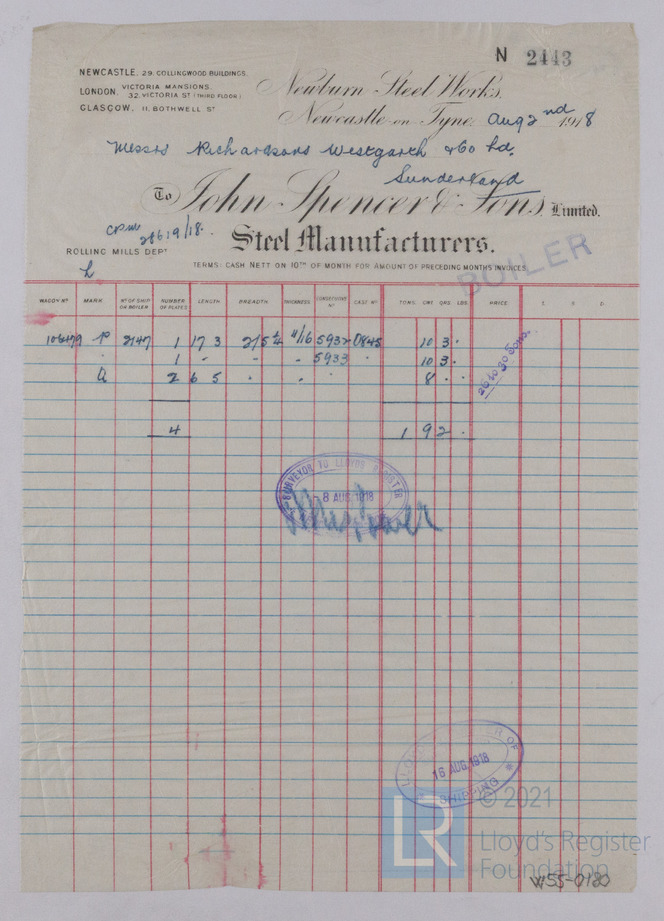 N 2443
NEWCASTLE. 29. COLLINGWOOD BUILDINGS.
LONDON. VICTORIA MANSIONS, 32, VICTORIA ST (THIRD FLOOR)
GLASGOW. 11, BOTHWELL ST
Newburn Steel Works,
Newcastle-on-Tyne, Aug 2nd 1918
Messrs Richardsons Westgarth & Co Ld.
Sunderland
To John Spencer & Sons, Limited.
Steel Manufacturers.
ROLLING MILLS DEPT
TERMS: CASH NETT ON 10TH OF MONTH FOR AMOUNT OF PRECEDING MONTHS INVOICES.
BOILER
WAGON No MARK No OF SHIP OR BOILER NUMBER OF PLATES LENGTH BREADTH THICKNESS CONSECUTIVE No CAST No TONS CWT QRS LBS PRICE £ S D
2147 1 17 3 11/16 5932 0845 10 3 .
1 " " " 5933 " 10 3 .
2 6 5 " " " 8 . .
20 to 30 Tons.
4 1 9 2 .
SURVEYOR TO LLOYDS REGISTER
-8 AUG. 1918
LLOYD'S REGISTER OF SHIPPING
16 AUG. 1918
© 2021
LR
Lloyd's Register
Foundation
W55-0180